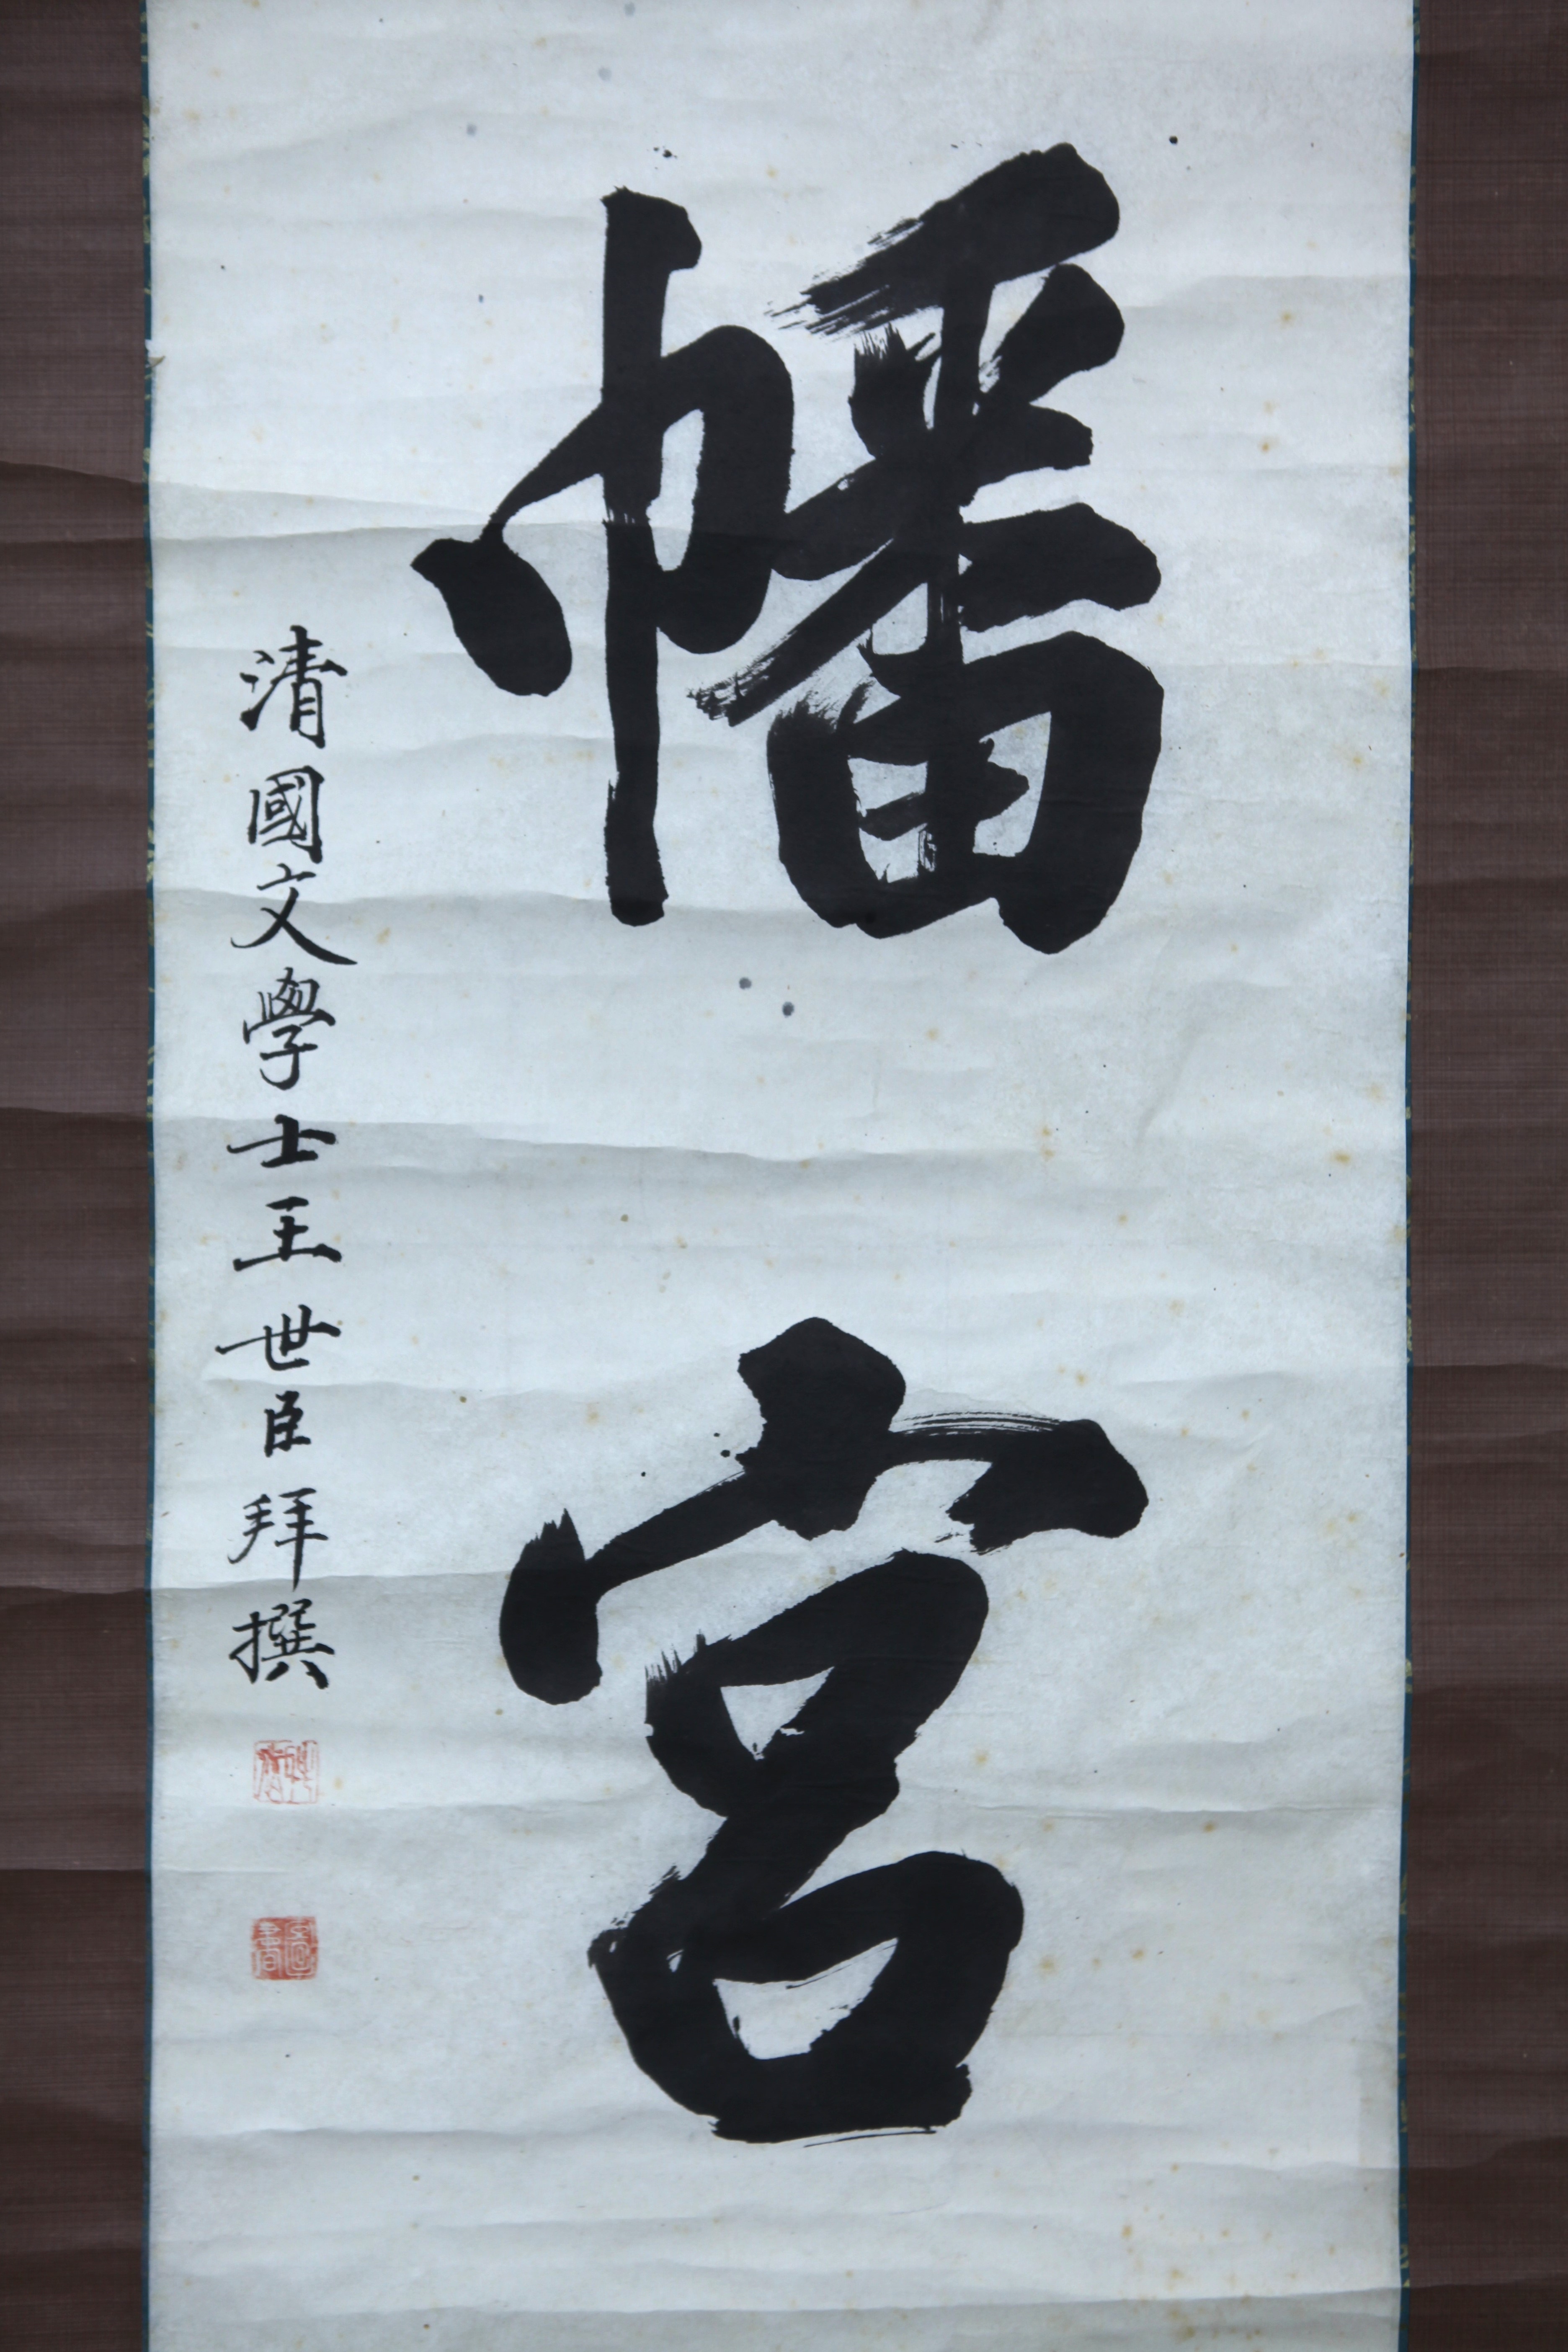 幡宮
清國文學士王世臣拜撰